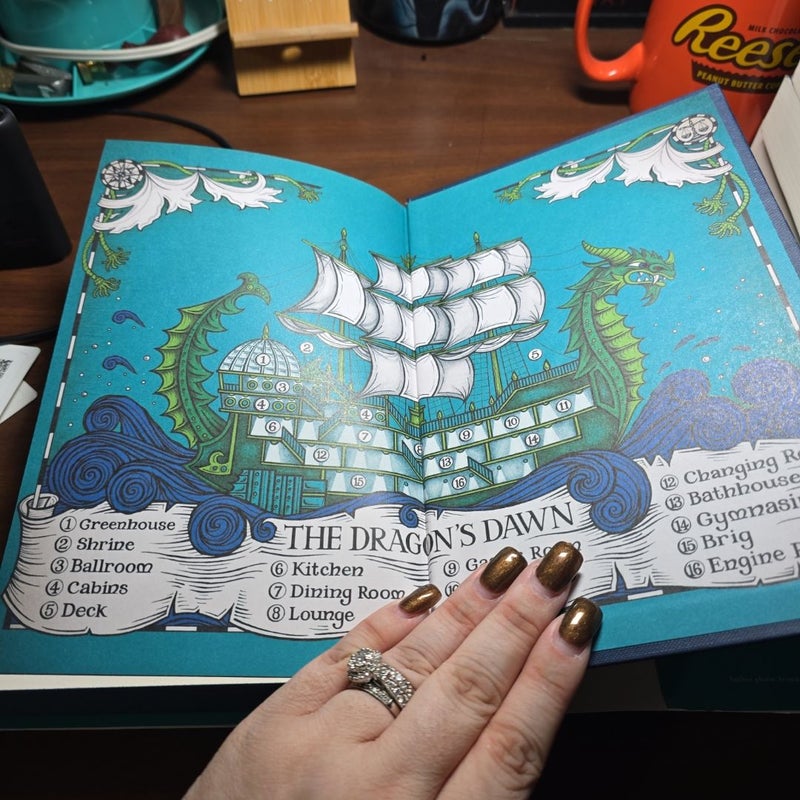 MILK CHOCOLA
Reese
PEANUT BUTTER CU
① Greenhouse
② Shrine
③ Ballroom
④ Cabins
⑤ Deck
THE DRAGON'S DAWN
⑥ Kitchen
⑦ Dining Room
⑧ Lounge
⑨ Ga Room
⑫ Changing Ro
⑬ Bathhouse
⑭ Gymnasi
⑮ Brig
⑯ Engine
1
2
3
4
4
5
6
7
9
10
11
12
13
14
15
16